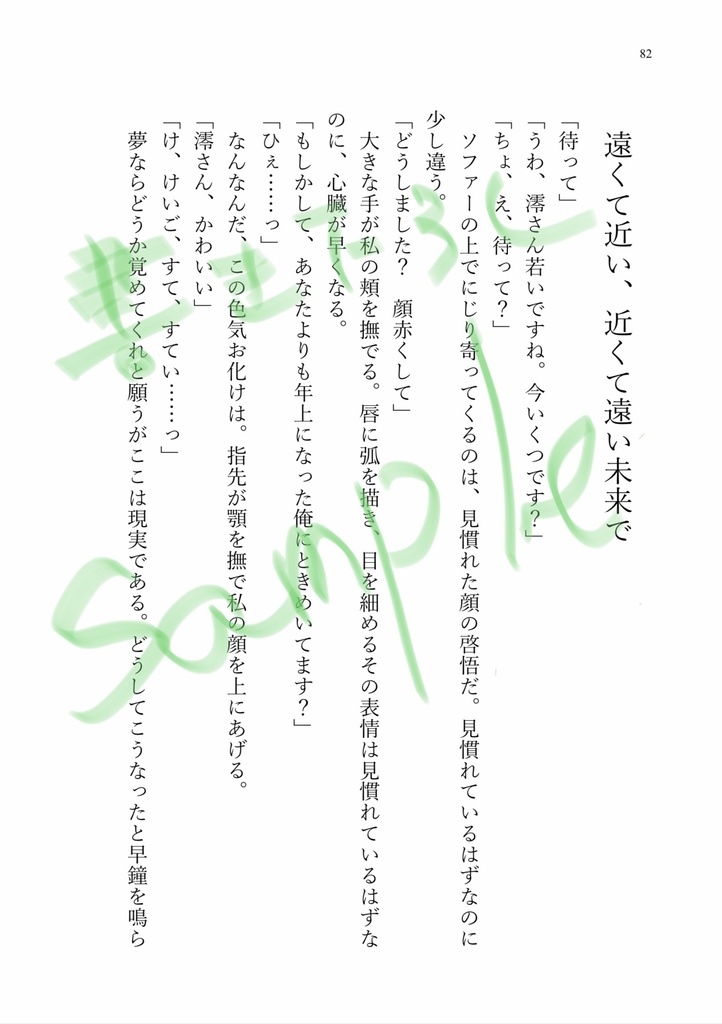 82
遠くて近い、近くて遠い未来で
「待って」
「うわ、澪さん若いですね。今いくつです？」
「ちょ、え、待って？」
　ソファーの上でにじり寄ってくるのは、見慣れた顔の啓悟だ。見慣れているはずなのに
少し違う。
「どうしました？　顔赤くして」
　大きな手が私の頬を撫でる。唇に弧を描き、目を細めるその表情は見慣れているはずな
のに、心臓が早くなる。
「もしかして、あなたよりも年上になった俺にときめいてます？」
「ひぇ……っ」
　なんなんだ、この色気お化けは。指先が顎を撫で私の顔を上にあげる。
「澪さん、かわいい」
「け、けいご、すて、すてい……っ」
　夢ならどうか覚めてくれと願うがここは現実である。どうしてこうなったと早鐘を鳴ら
書き下ろし
sample